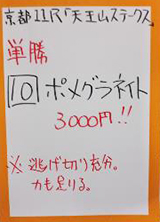 京都11R「天王山ステークス」
単勝
10 ポメグラネイト
3000円!!
※逃げ切り充分。
力も足りる。